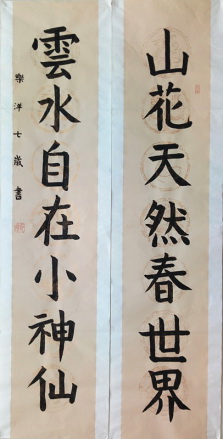 山花天然春世界
雲水自在小神仙
樂洋七歲書